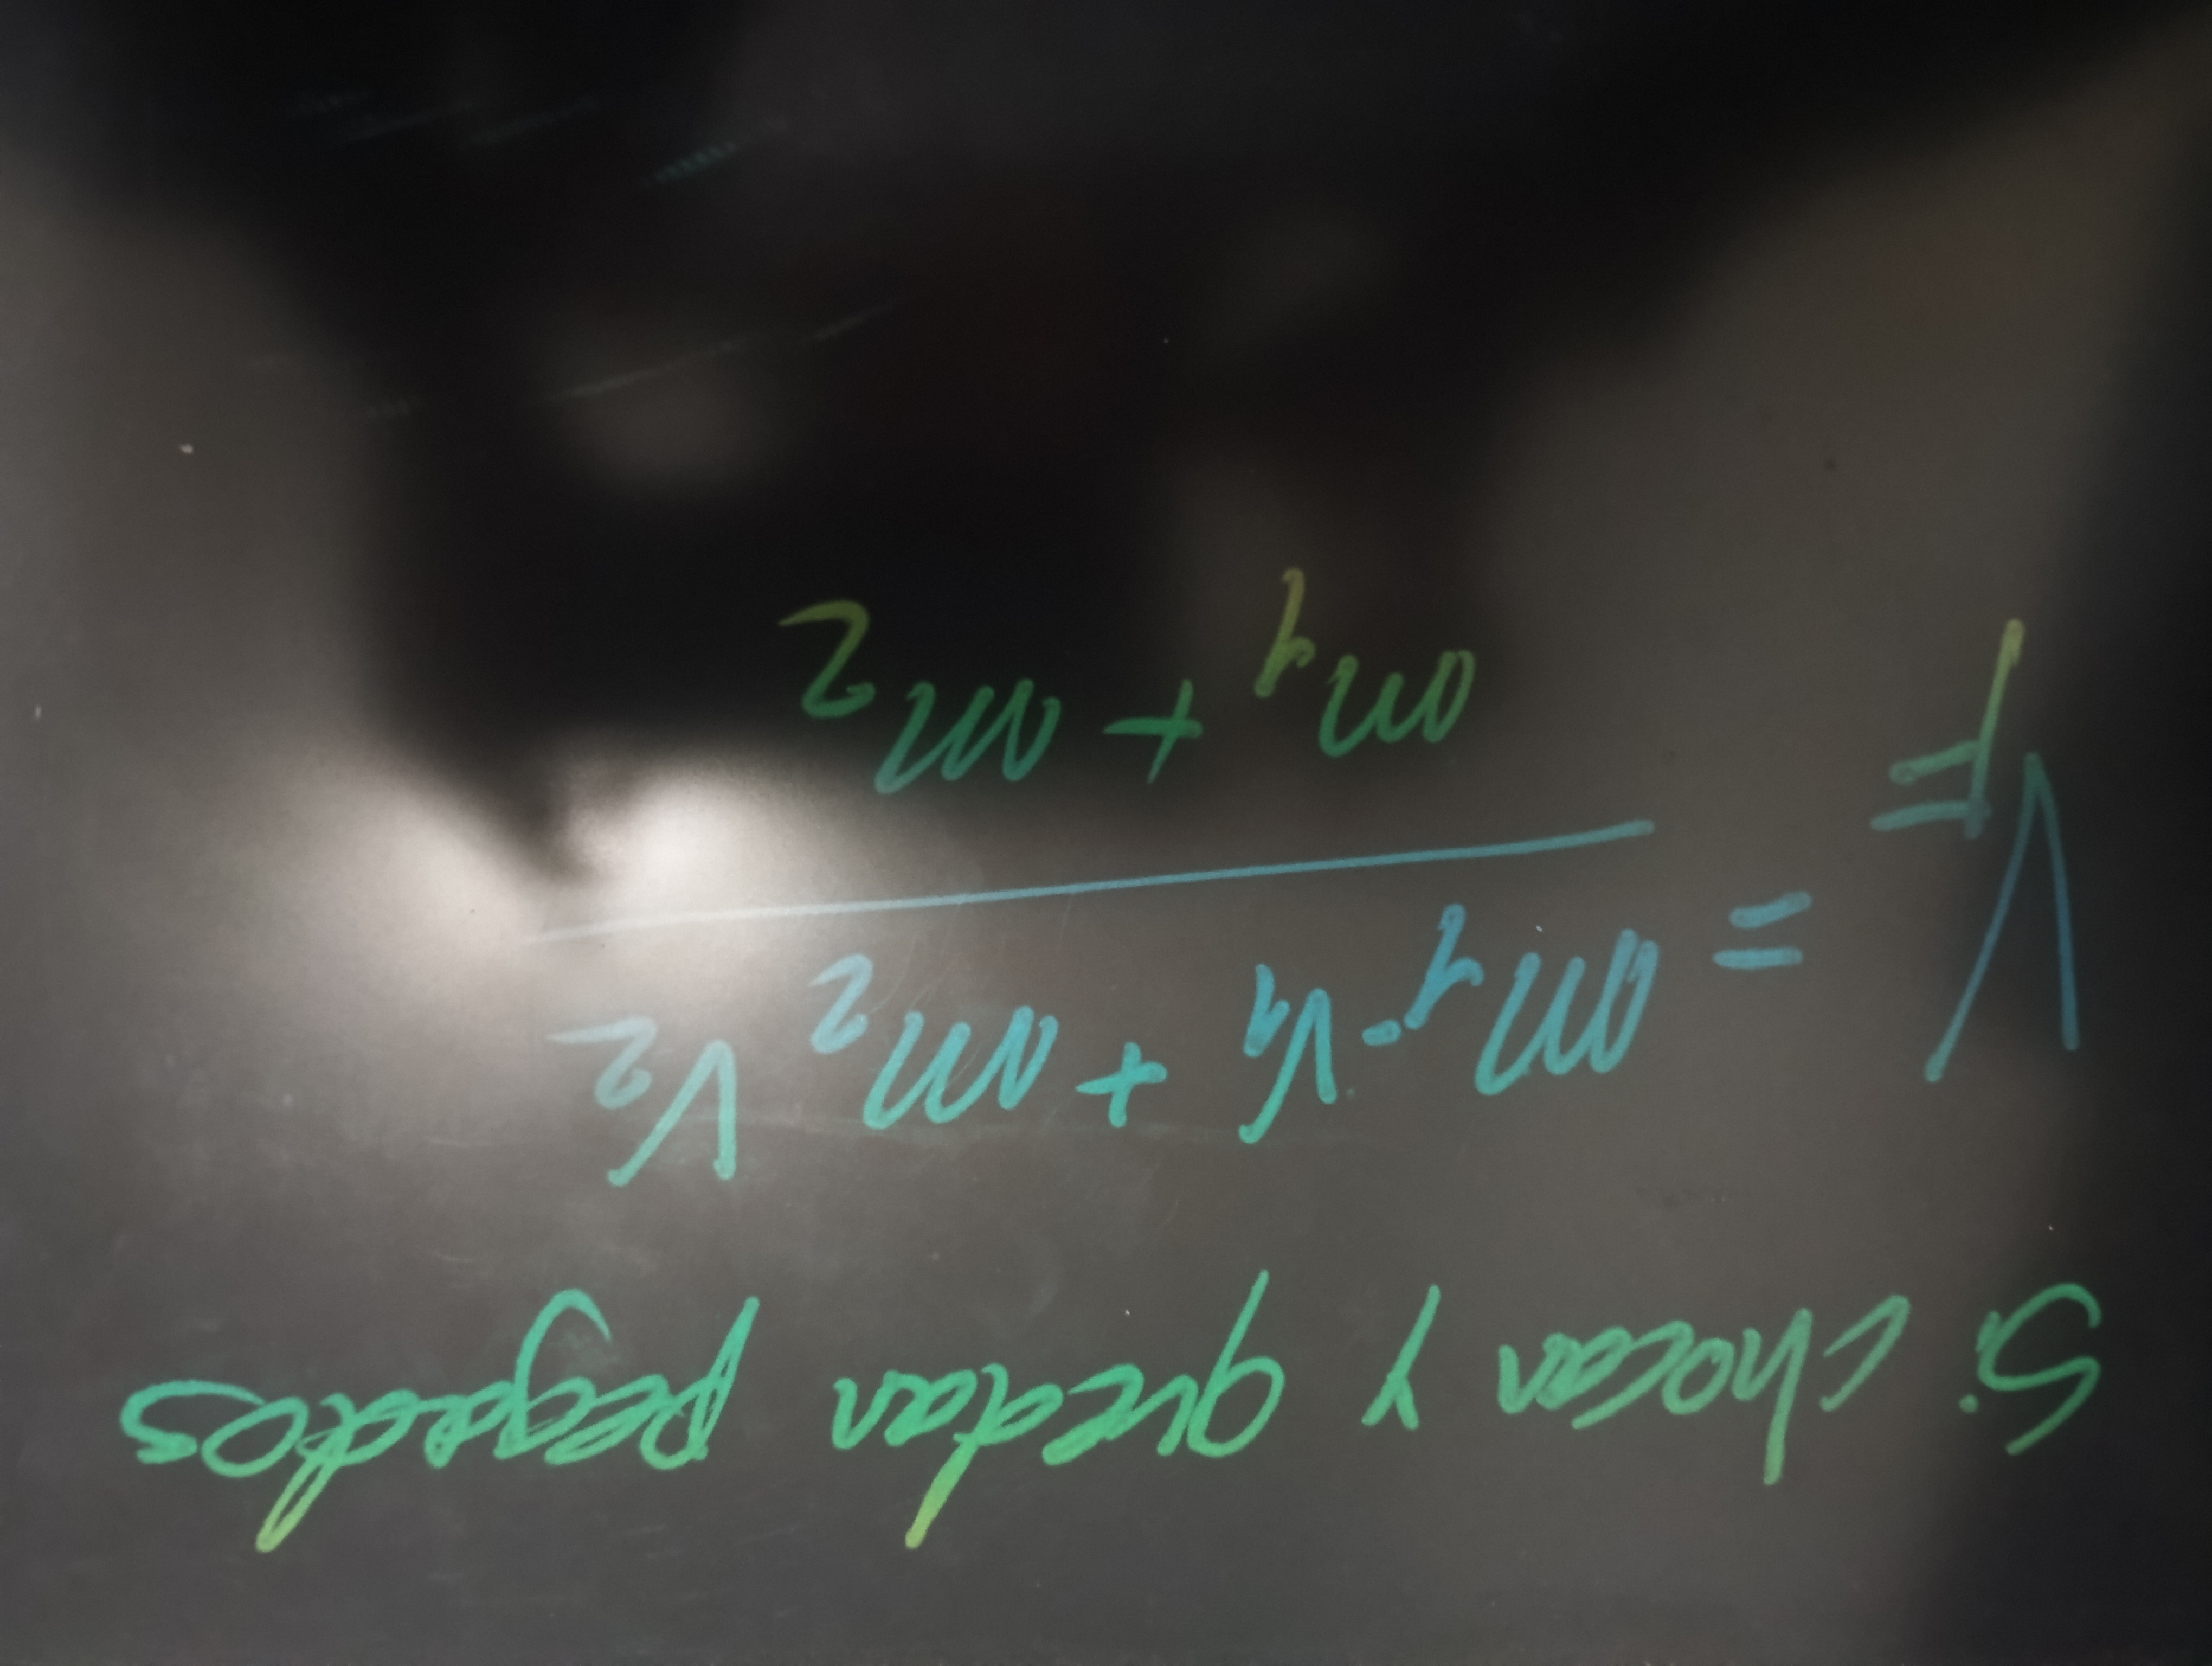 Si chocan y quedan pegados
V_F = m_1·v_1 + m_2 v_2
m_1 + m_2